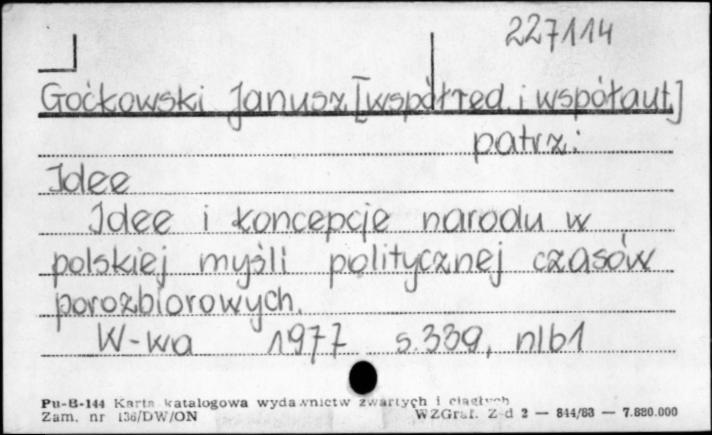 227114
Goćkowski Janusz [współred. i współaut.]
patrz:
Idee
Idee i koncepcje narodu w
polskiej myśli politycznej czasów
porozbiorowych.
W-wa 1977 s.339, nlb1
Pu-B-144 Karta katalogowa wydawnictw zwartych i ciągłych
Zam. nr 136/DW/ON WZGraf. Z-d 2 — 844/83 — 7.880.000